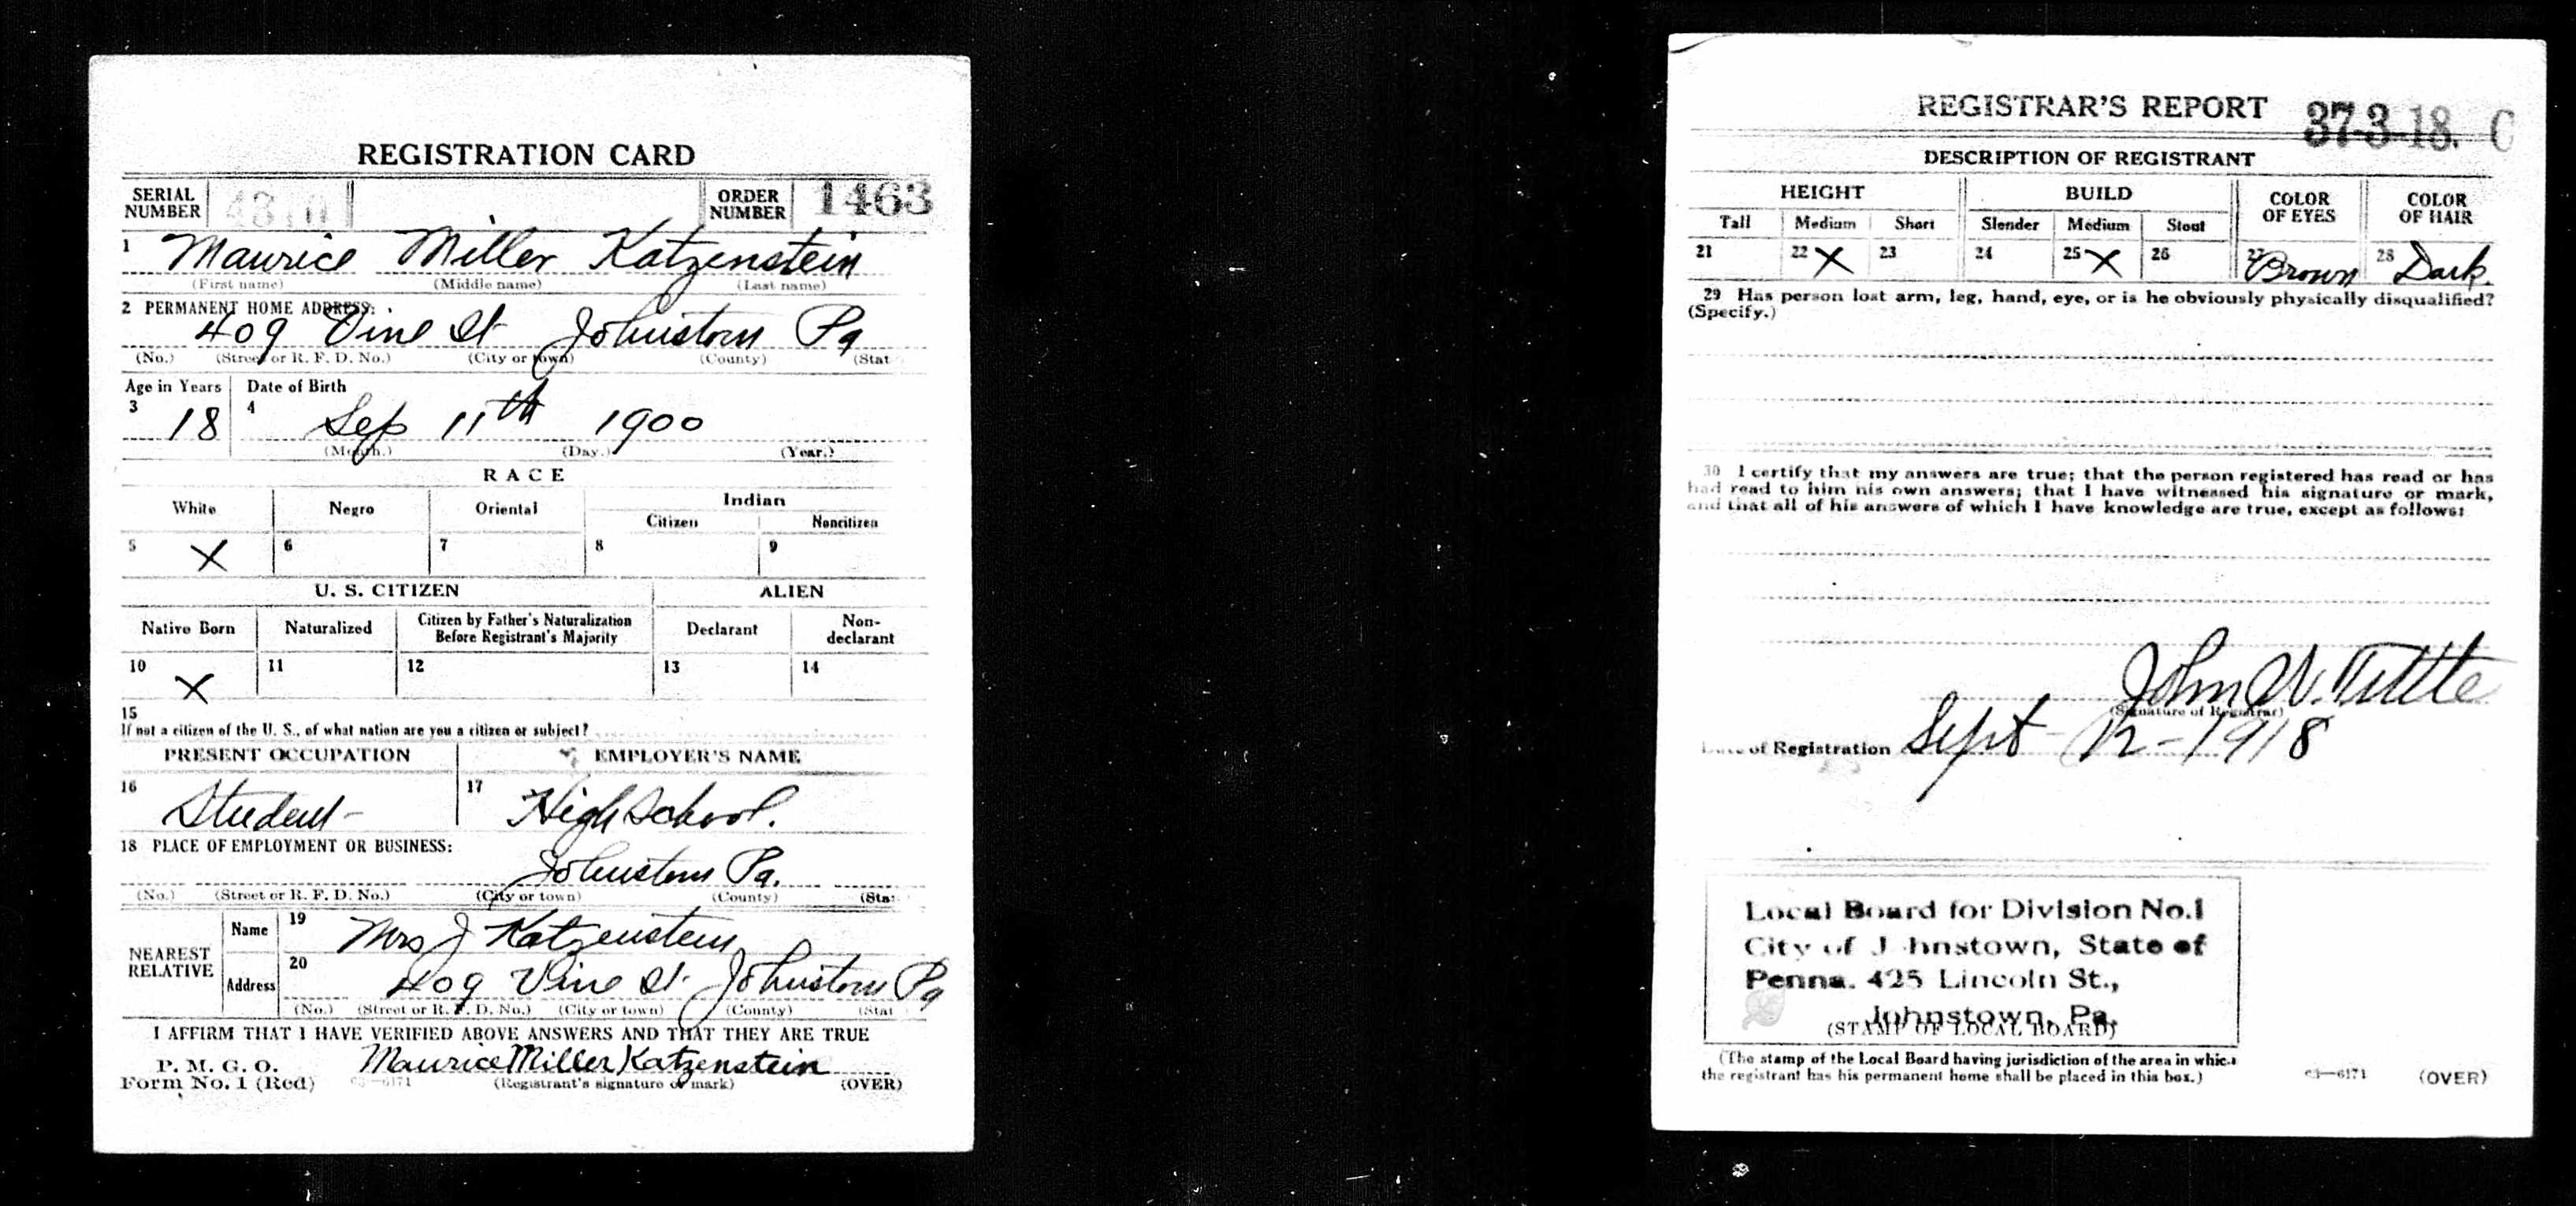 REGISTRATION CARD
SERIAL NUMBER ORDER NUMBER 1463
1 Maurice Miller Katzenstein
(First name) (Middle name) (Last name)
2 PERMANENT HOME ADDRESS:
409 Vine St Johnstown Pa
(No.) (Street or R. F. D. No.) (City or town) (County) (Stat
Age in Years Date of Birth
3 18 4 Sep 11th 1900
(Month.) (Day.) (Year.)
RACE
White Negro Oriental Indian
Citizen Noncitizen
5 X 6 7 8 9
U. S. CITIZEN ALIEN
Native Born Naturalized Citizen by Father's Naturalization Before Registrant's Majority Declarant Non-declarant
10 X 11 12 13 14
15
If not a citizen of the U. S., of what nation are you a citizen or subject?
PRESENT OCCUPATION EMPLOYER'S NAME
16 Student 17 High School.
18 PLACE OF EMPLOYMENT OR BUSINESS:
Johnstown Pa.
(No.) (Street or R. F. D. No.) (City or town) (County) (Sta
NEAREST RELATIVE Name 19 Mrs J Katzenstein
Address 20 409 Vine St. Johnstown Pa
(No.) (Street or R. F. D. No.) (City or town) (County) (Stat
I AFFIRM THAT I HAVE VERIFIED ABOVE ANSWERS AND THAT THEY ARE TRUE
P. M. G. O.
Form No. 1 (Red) Maurice Miller Katzenstein
03—6171 (Registrant's signature or mark) (OVER)
REGISTRAR'S REPORT 37-3-18. C
DESCRIPTION OF REGISTRANT
HEIGHT BUILD COLOR OF EYES COLOR OF HAIR
Tall Medium Short Slender Medium Stout
21 22 X 23 24 25 X 26 27 Brown 28 Dark.
29 Has person lost arm, leg, hand, eye, or is he obviously physically disqualified?
(Specify.)
30 I certify that my answers are true; that the person registered has read or has
had read to him his own answers; that I have witnessed his signature or mark,
and that all of his answers of which I have knowledge are true, except as follows:
John W. Tuttle
(Signature of Registrar)
Date of Registration Sept - 12 - 1918
Local Board for Division No.1
City of Johnstown, State of
Penna. 425 Lincoln St.,
Johnstown, Pa.
(STAMP OF LOCAL BOARD)
(The stamp of the Local Board having jurisdiction of the area in which
the registrant has his permanent home shall be placed in this box.)
03—6171 (OVER)